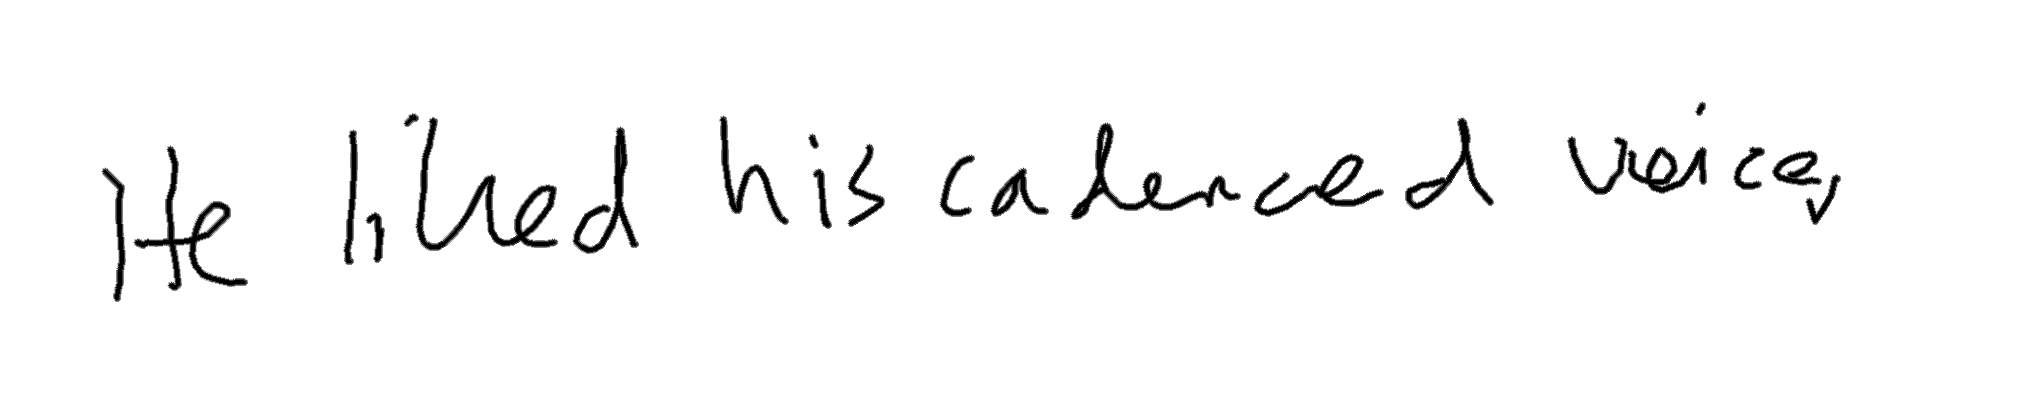 He liked his cadenced voice,